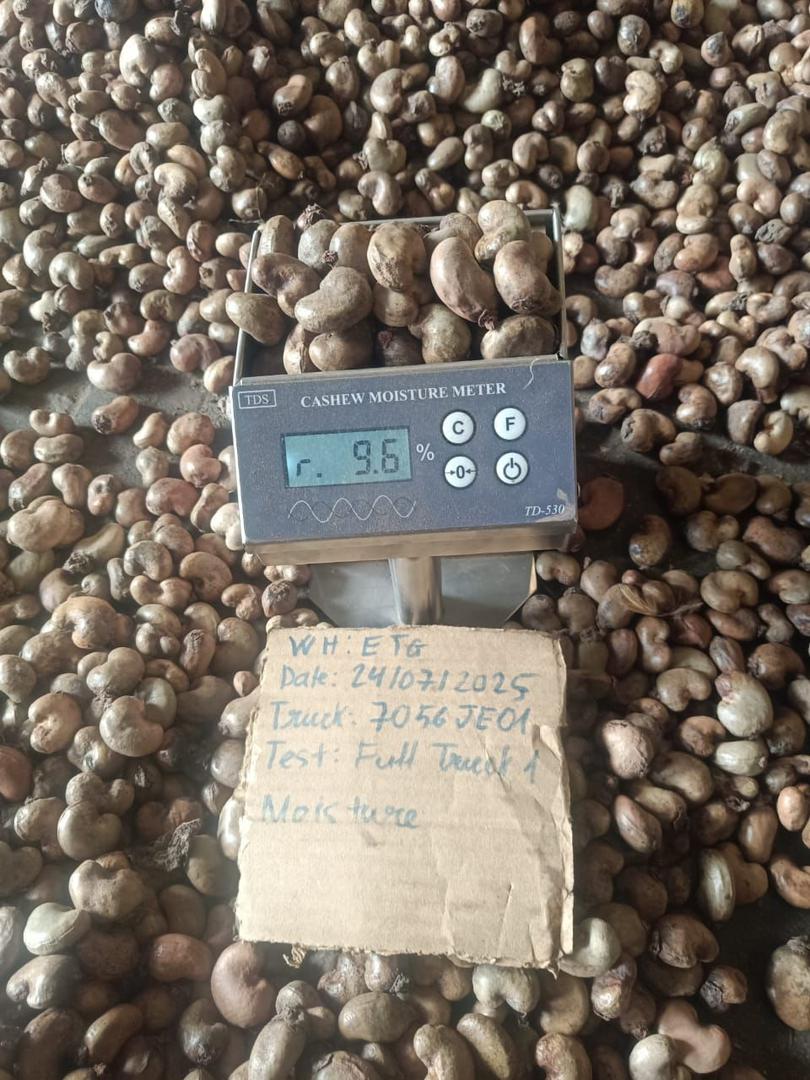 TDS CASHEW MOISTURE METER
C F
r. 9.6 %
→0←
TD-530
WH: ETG
Date: 24/07/2025
Truck: 7056JE01
Test: Full Truck 1
Moisture